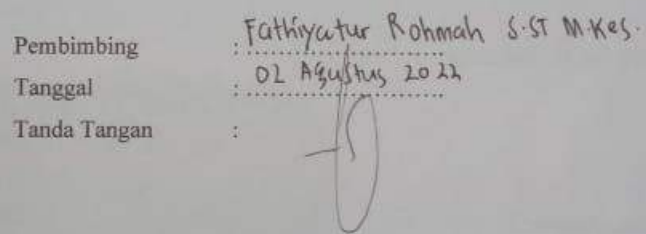 Pembimbing : Fathiyatur Rohmah S.ST M.Kes.
Tanggal : 02 Agustus 2022
Tanda Tangan :